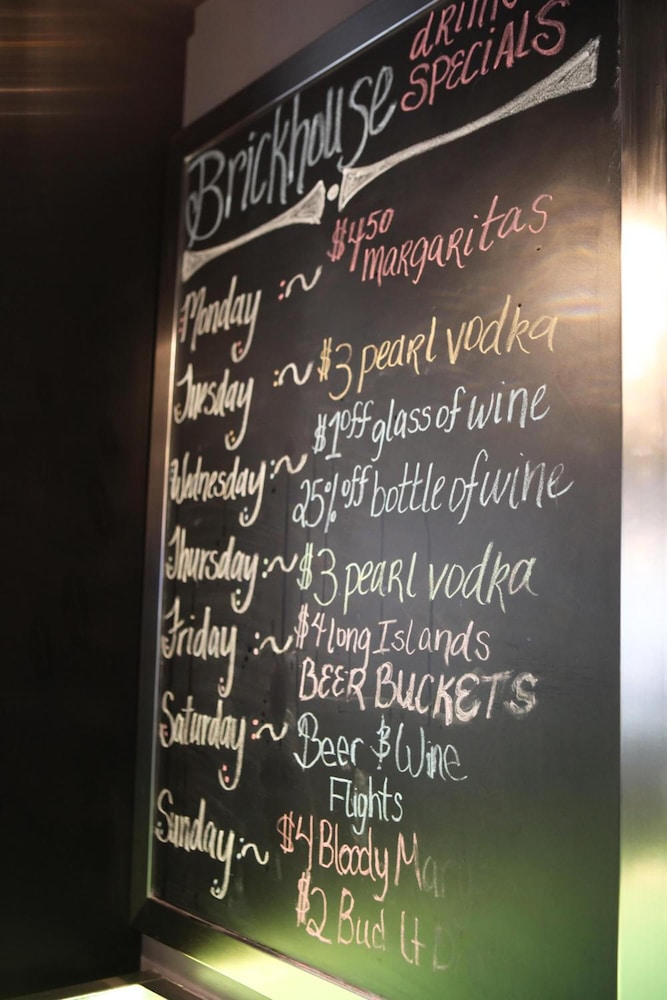 Brickhouse drink SPECIALS
Monday :~ $4.50 margaritas
Tuesday :~ $3 pearl vodka
Wednesday :~ $1 off glass of wine
25% off bottle of wine
Thursday :~ $3 pearl vodka
Friday :~ $4 long Islands
BEER BUCKETS
Saturday :~ Beer & Wine
Flights
Sunday :~ $4 Bloody Mary
$2 Bud Lt